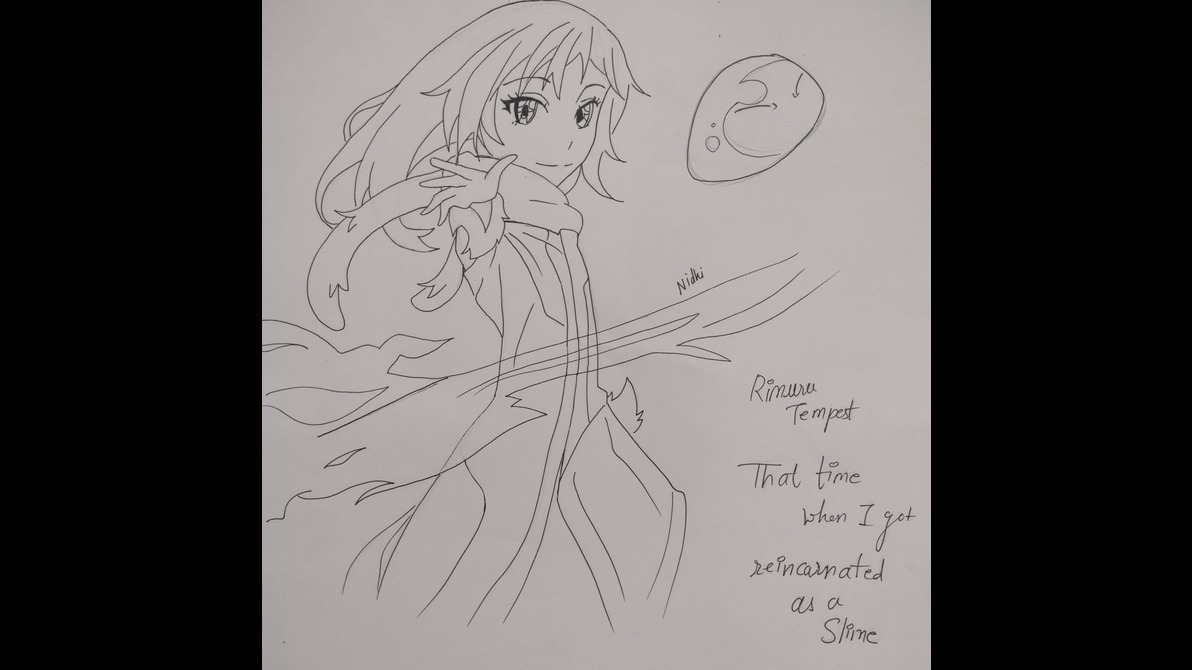 Nidhi
Rimuru
Tempest
That time
when I got
reincarnated
as a
Slime